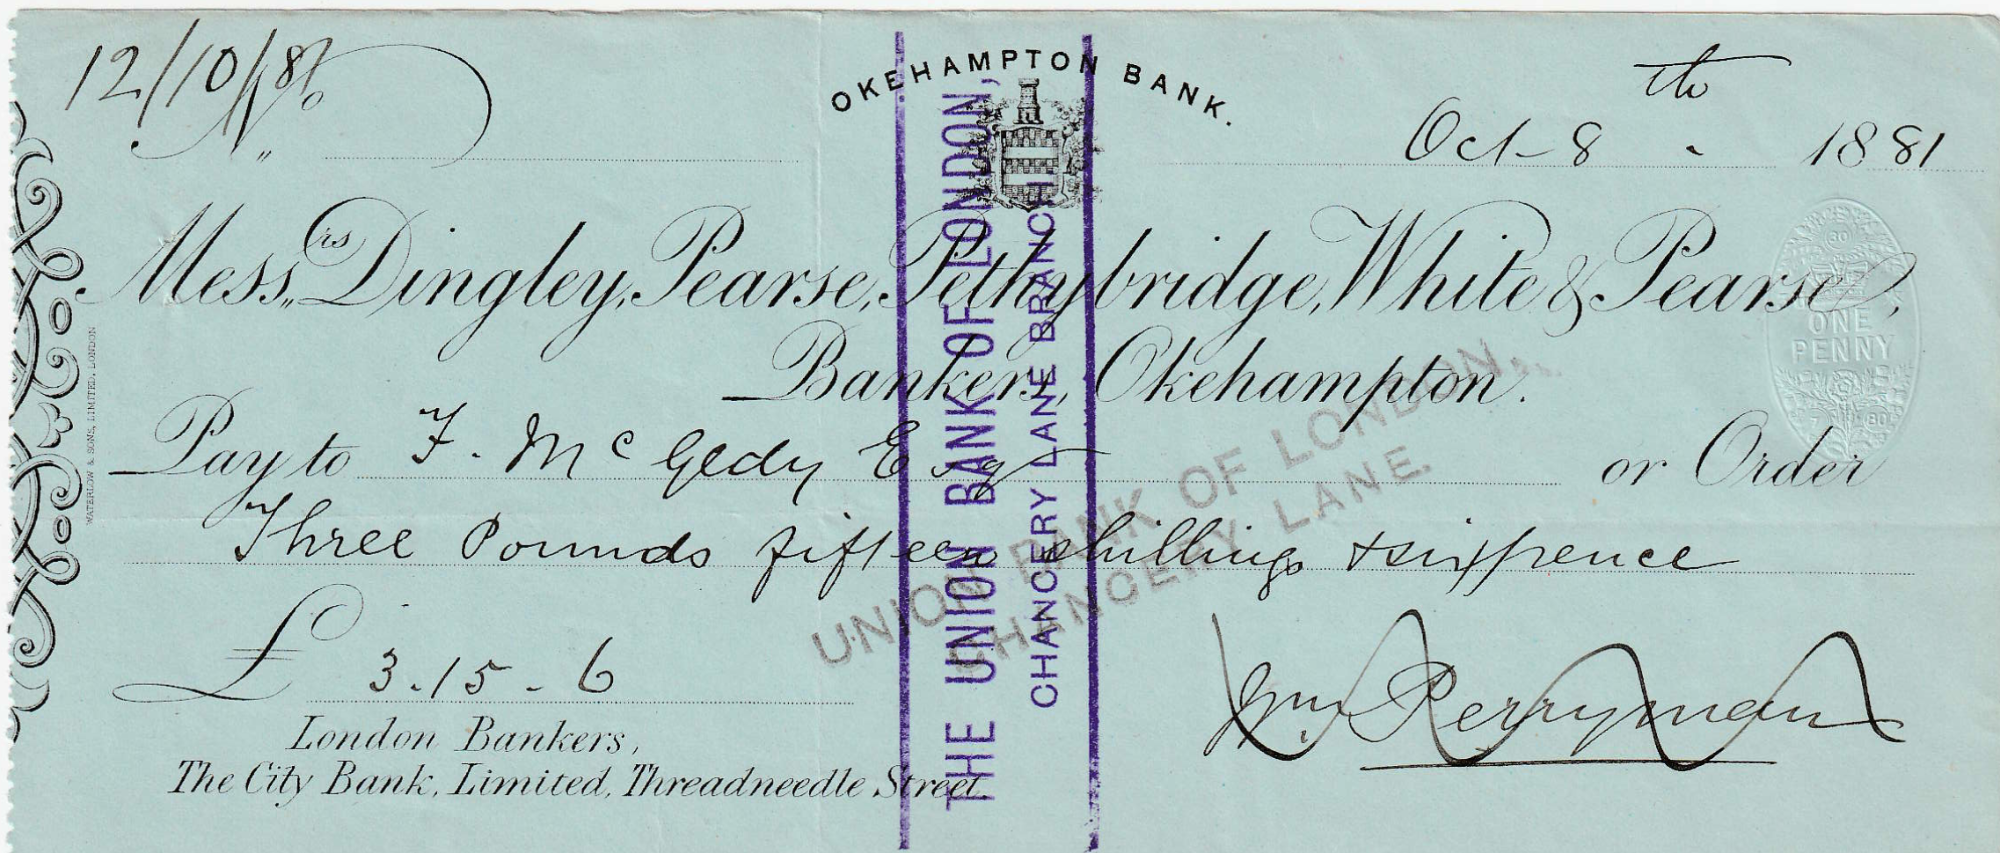 12/10/81
No
OKEHAMPTON BANK.
Oct 8th 1881
Messrs Dingley, Pearse, Pethybridge, White & Pearse,
Bankers, Okehampton.
ONE
PENNY
Pay to F. Mc Gedy Esq or Order
Three Pounds fifteen shillings & sixpence
£ 3.15-6
Wm. Perryman
London Bankers,
The City Bank, Limited, Threadneedle Street.
WATERLOW & SONS, LIMITED, LONDON
THE UNION BANK OF LONDON,
CHANCERY LANE BRANCH
UNION BANK OF LONDON,
CHANCERY LANE.